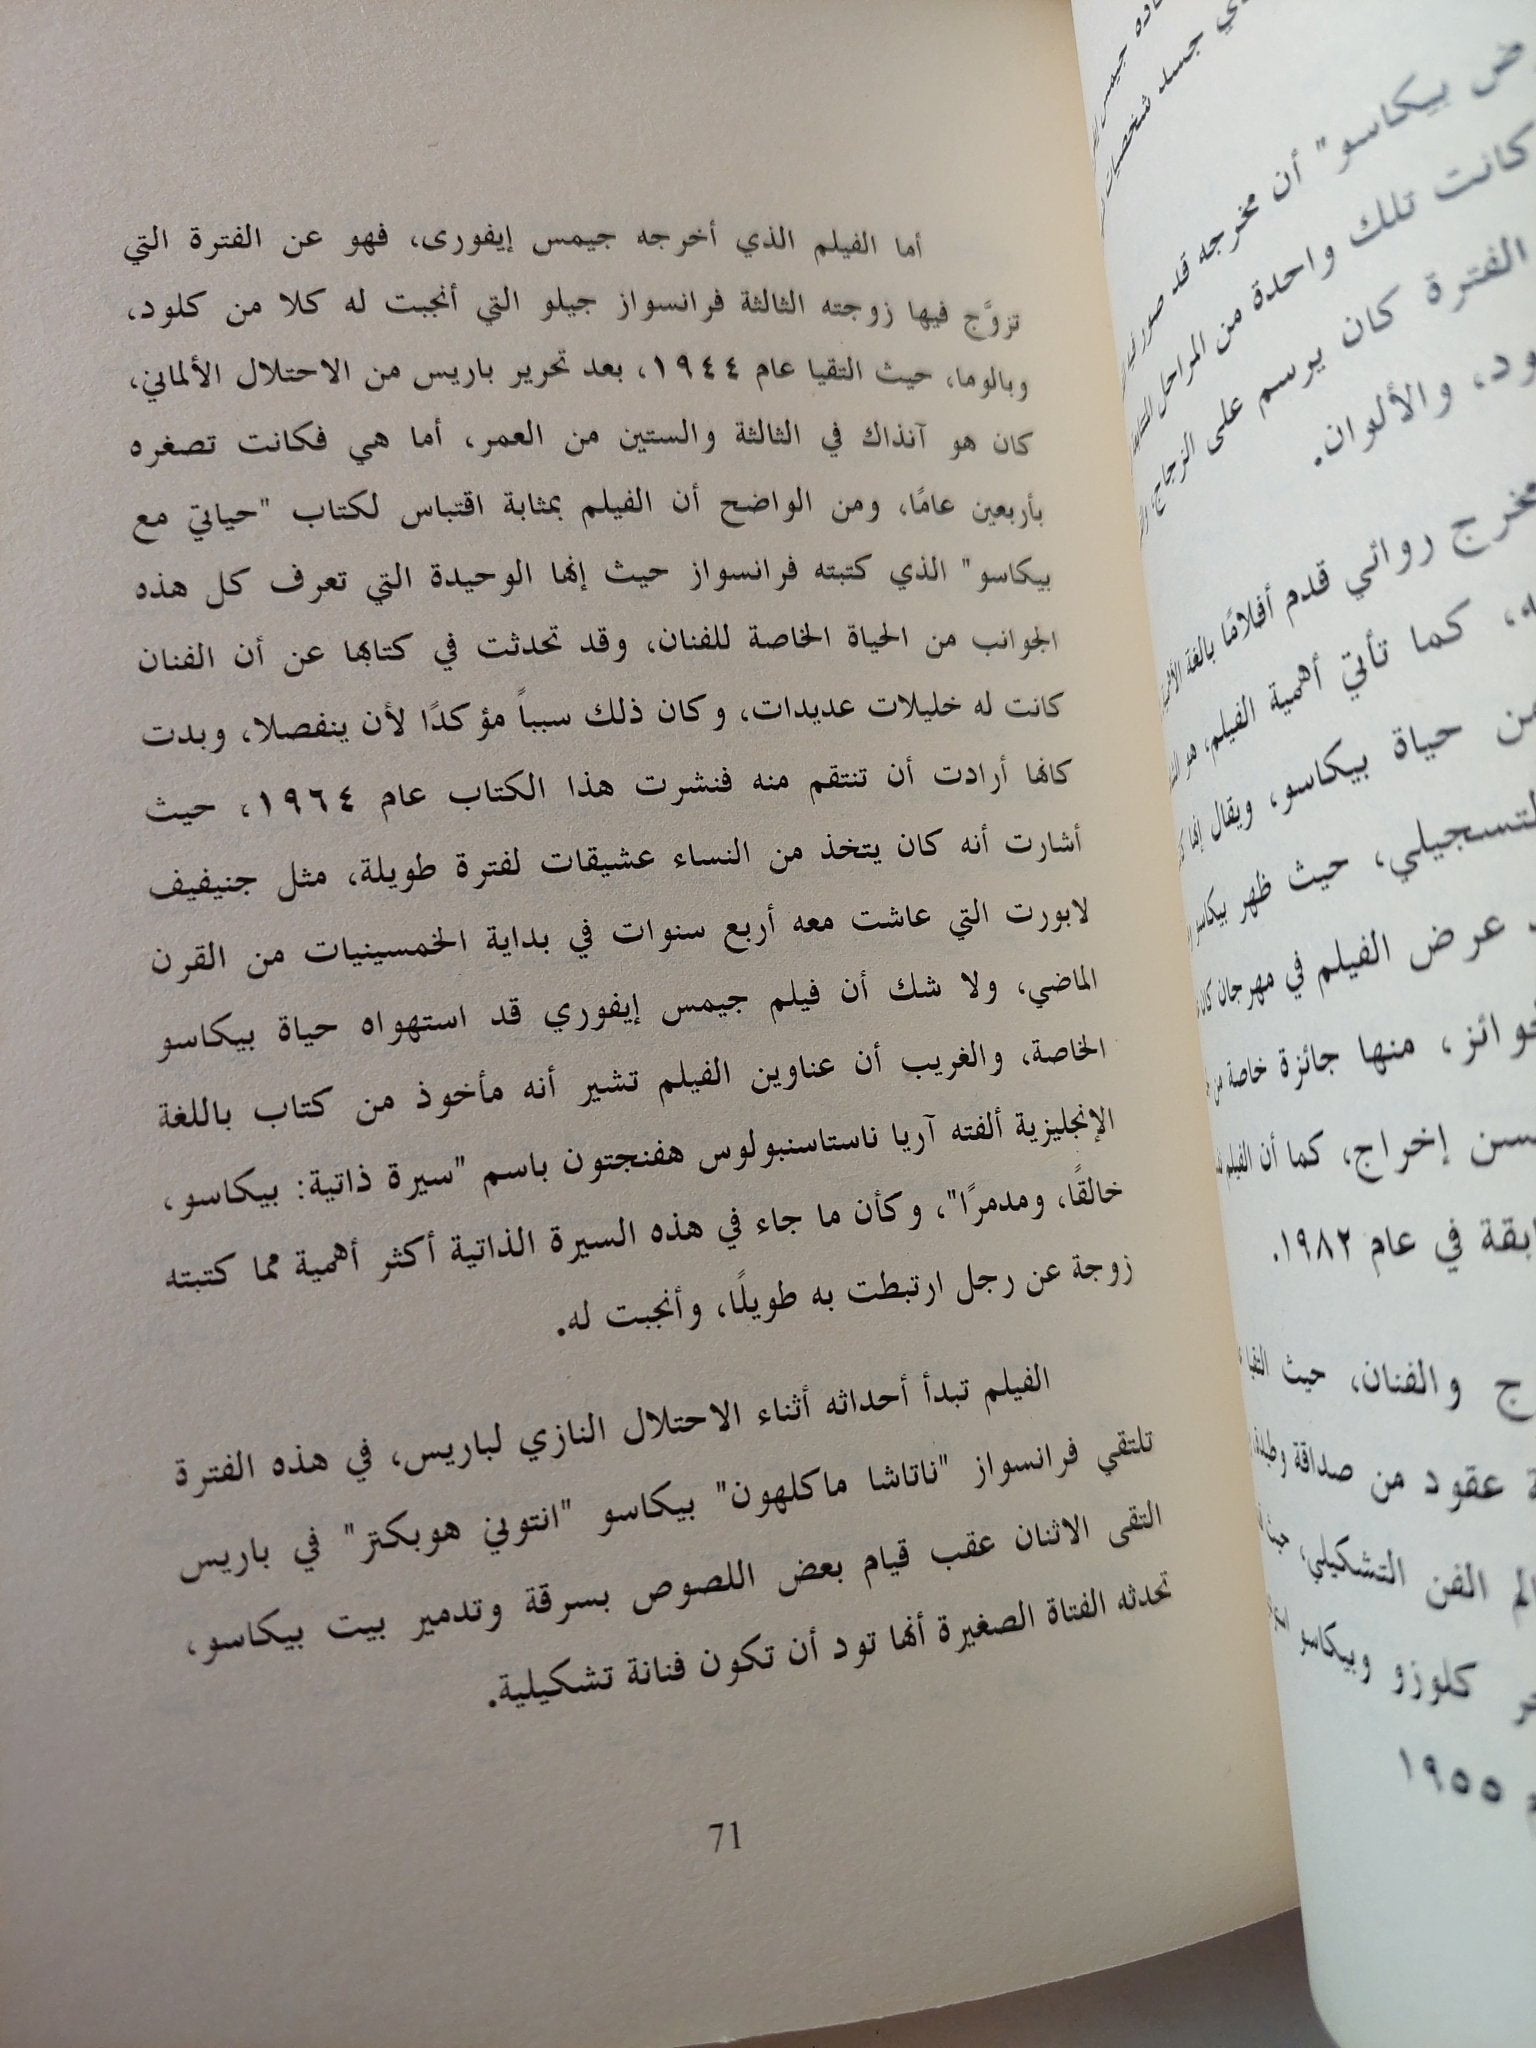 أما الفيلم الذي أخرجه جيمس إيفورى، فهو عن الفترة التي
تزوَّج فيها زوجته الثالثة فرانسواز جيلو التي أنجبت له كلا من كلود،
وبالوما، حيث التقيا عام ١٩٤٤، بعد تحرير باريس من الاحتلال الألماني،
كان هو آنذاك في الثالثة والستين من العمر، أما هي فكانت تصغره
بأربعين عامًا، ومن الواضح أن الفيلم بمثابة اقتباس لكتاب "حياتي مع
بيكاسو" الذي كتبته فرانسواز حيث إنها الوحيدة التي تعرف كل هذه
الجوانب من الحياة الخاصة للفنان، وقد تحدثت في كتابها عن أن الفنان
كانت له خليلات عديدات، وكان ذلك سبباً مؤكدًا لأن ينفصلا، وبدت
كانها أرادت أن تنتقم منه فنشرت هذا الكتاب عام ١٩٦٤، حيث
أشارت أنه كان يتخذ من النساء عشيقات لفترة طويلة، مثل جنيفيف
لابورت التي عاشت معه أربع سنوات في بداية الخمسينيات من القرن
الماضي، ولا شك أن فيلم جيمس إيفوري قد استهواه حياة بيكاسو
الخاصة، والغريب أن عناوين الفيلم تشير أنه مأخوذ من كتاب باللغة
الإنجليزية ألفته آريا ناستاسنبولوس هفنجتون باسم "سيرة ذاتية: بيكاسو،
خالقًا، ومدمرًا"، وكأن ما جاء في هذه السيرة الذاتية أكثر أهمية مما كتبته
زوجة عن رجل ارتبطت به طويلًا، وأنجبت له.
الفيلم تبدأ أحداثه أثناء الاحتلال النازي لباريس، في هذه الفترة
تلتقي فرانسواز "ناتاشا ماكلهون" بيكاسو "انتوني هوبكتر" في باريس
التقى الاثنان عقب قيام بعض اللصوص بسرقة وتدمير بيت بيكاسو،
تحدثه الفتاة الصغيرة أنها تود أن تكون فنانة تشكيلية.
71
جسد شخصيات
بيكاسو" أن مخرجه قد صور
كانت تلك واحدة من المراحل
الفترة كان يرسم على الزجاج،
والألوان.
مخرج روائي قدم أفلامًا بالغة
كما تأتي أهمية الفيلم، هو
من حياة بيكاسو، ويقال إنها
التسجيلي، حيث ظهر بيكاسو
عرض الفيلم في مهرجان كان
منها جائزة خاصة من
إخراج، كما أن الفيلم
في عام ١٩٨٢.
والفنان، حيث
عقود من صداقة
الفن التشكيلي، حيث
كلوزو وبيكاسو
١٩٥٥